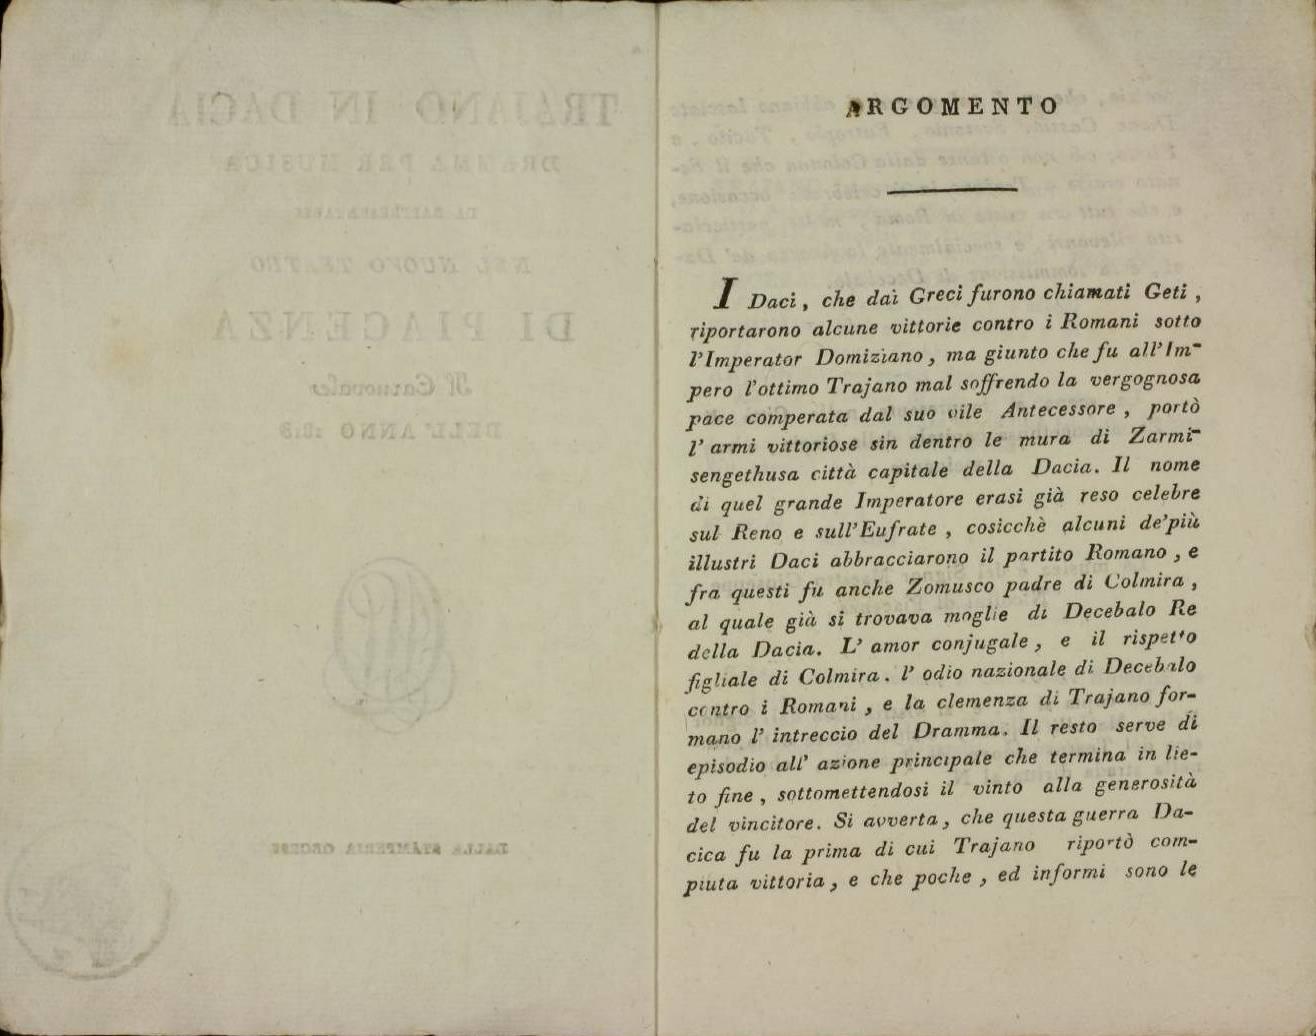 ARGOMENTO
I Daci, che dai Greci furono chiamati Geti,
riportarono alcune vittorie contro i Romani sotto
l'Imperator Domiziano, ma giunto che fu all'Im-
pero l'ottimo Trajano mal soffrendo la vergognosa
pace comperata dal suo vile Antecessore, portò
l'armi vittoriose sin dentro le mura di Zarmi-
sengethusa città capitale della Dacia. Il nome
di quel grande Imperatore erasi già reso celebre
sul Reno e sull'Eufrate, cosicchè alcuni de'più
illustri Daci abbracciarono il partito Romano, e
fra questi fu anche Zomusco padre di Colmira,
al quale già si trovava moglie di Decebalo Re
della Dacia. L'amor conjugale, e il rispetto
figliale di Colmira. l'odio nazionale di Decebalo
contro i Romani, e la clemenza di Trajano for-
mano l'intreccio del Dramma. Il resto serve di
episodio all'azione principale che termina in lie-
to fine, sottomettendosi il vinto alla generosità
del vincitore. Si avverta, che questa guerra Da-
cica fu la prima di cui Trajano riportò com-
piuta vittoria, e che poche, ed informi sono le